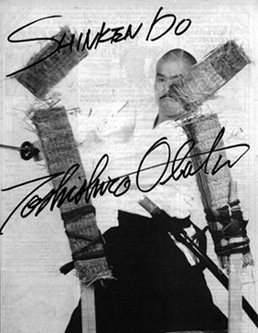 SHINKENDO
Toshishiro Obata